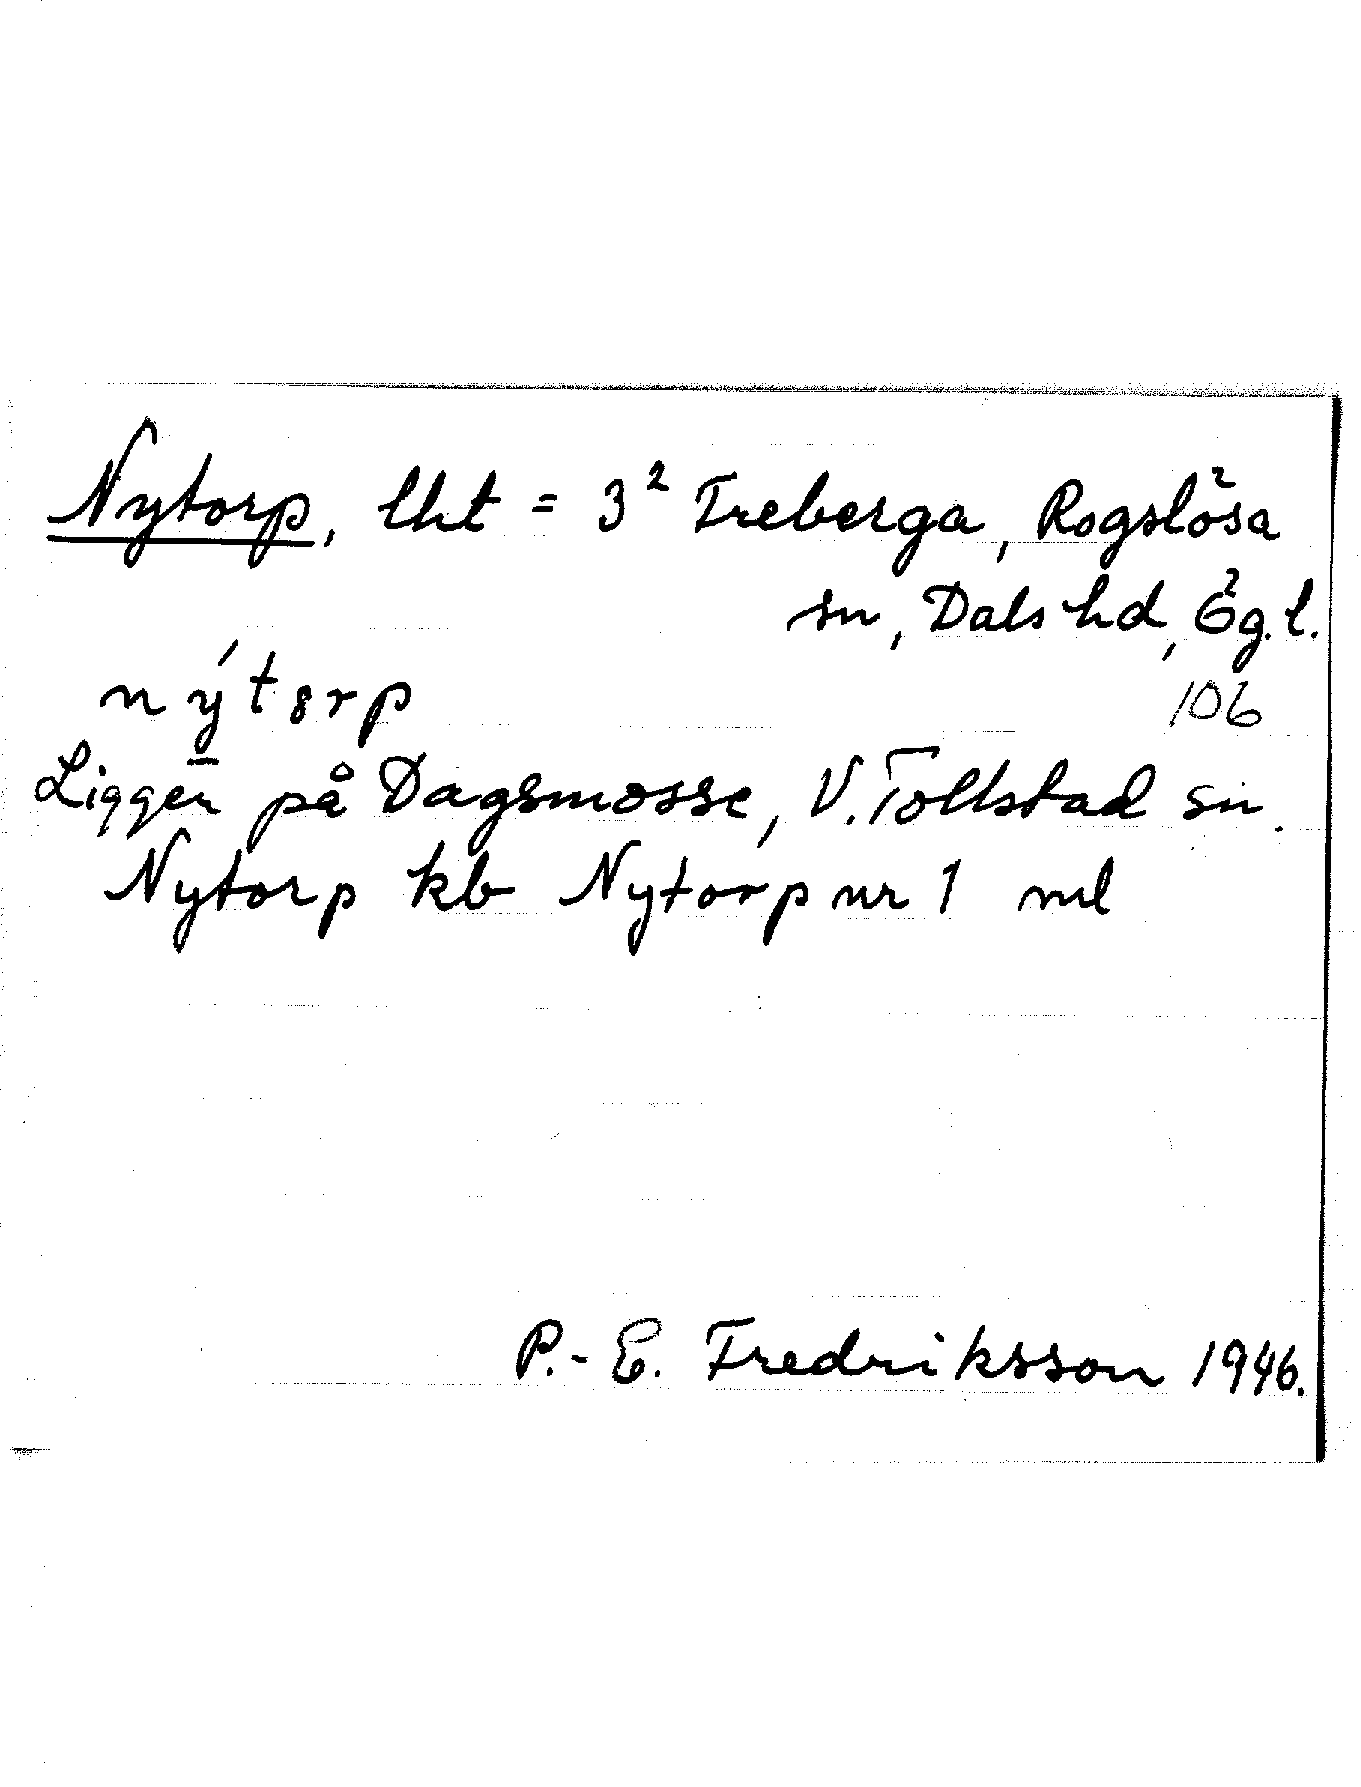 Nytorp, lht = 3² Treberga, Rogslösa
sn, Dals hd, Ög. l.
nýt8rp 106
Ligger på Dagsmosse, V. Tollstad sn.
Nytorp kb Nytorp nr 1 ml
P.-E. Fredriksson 1946.